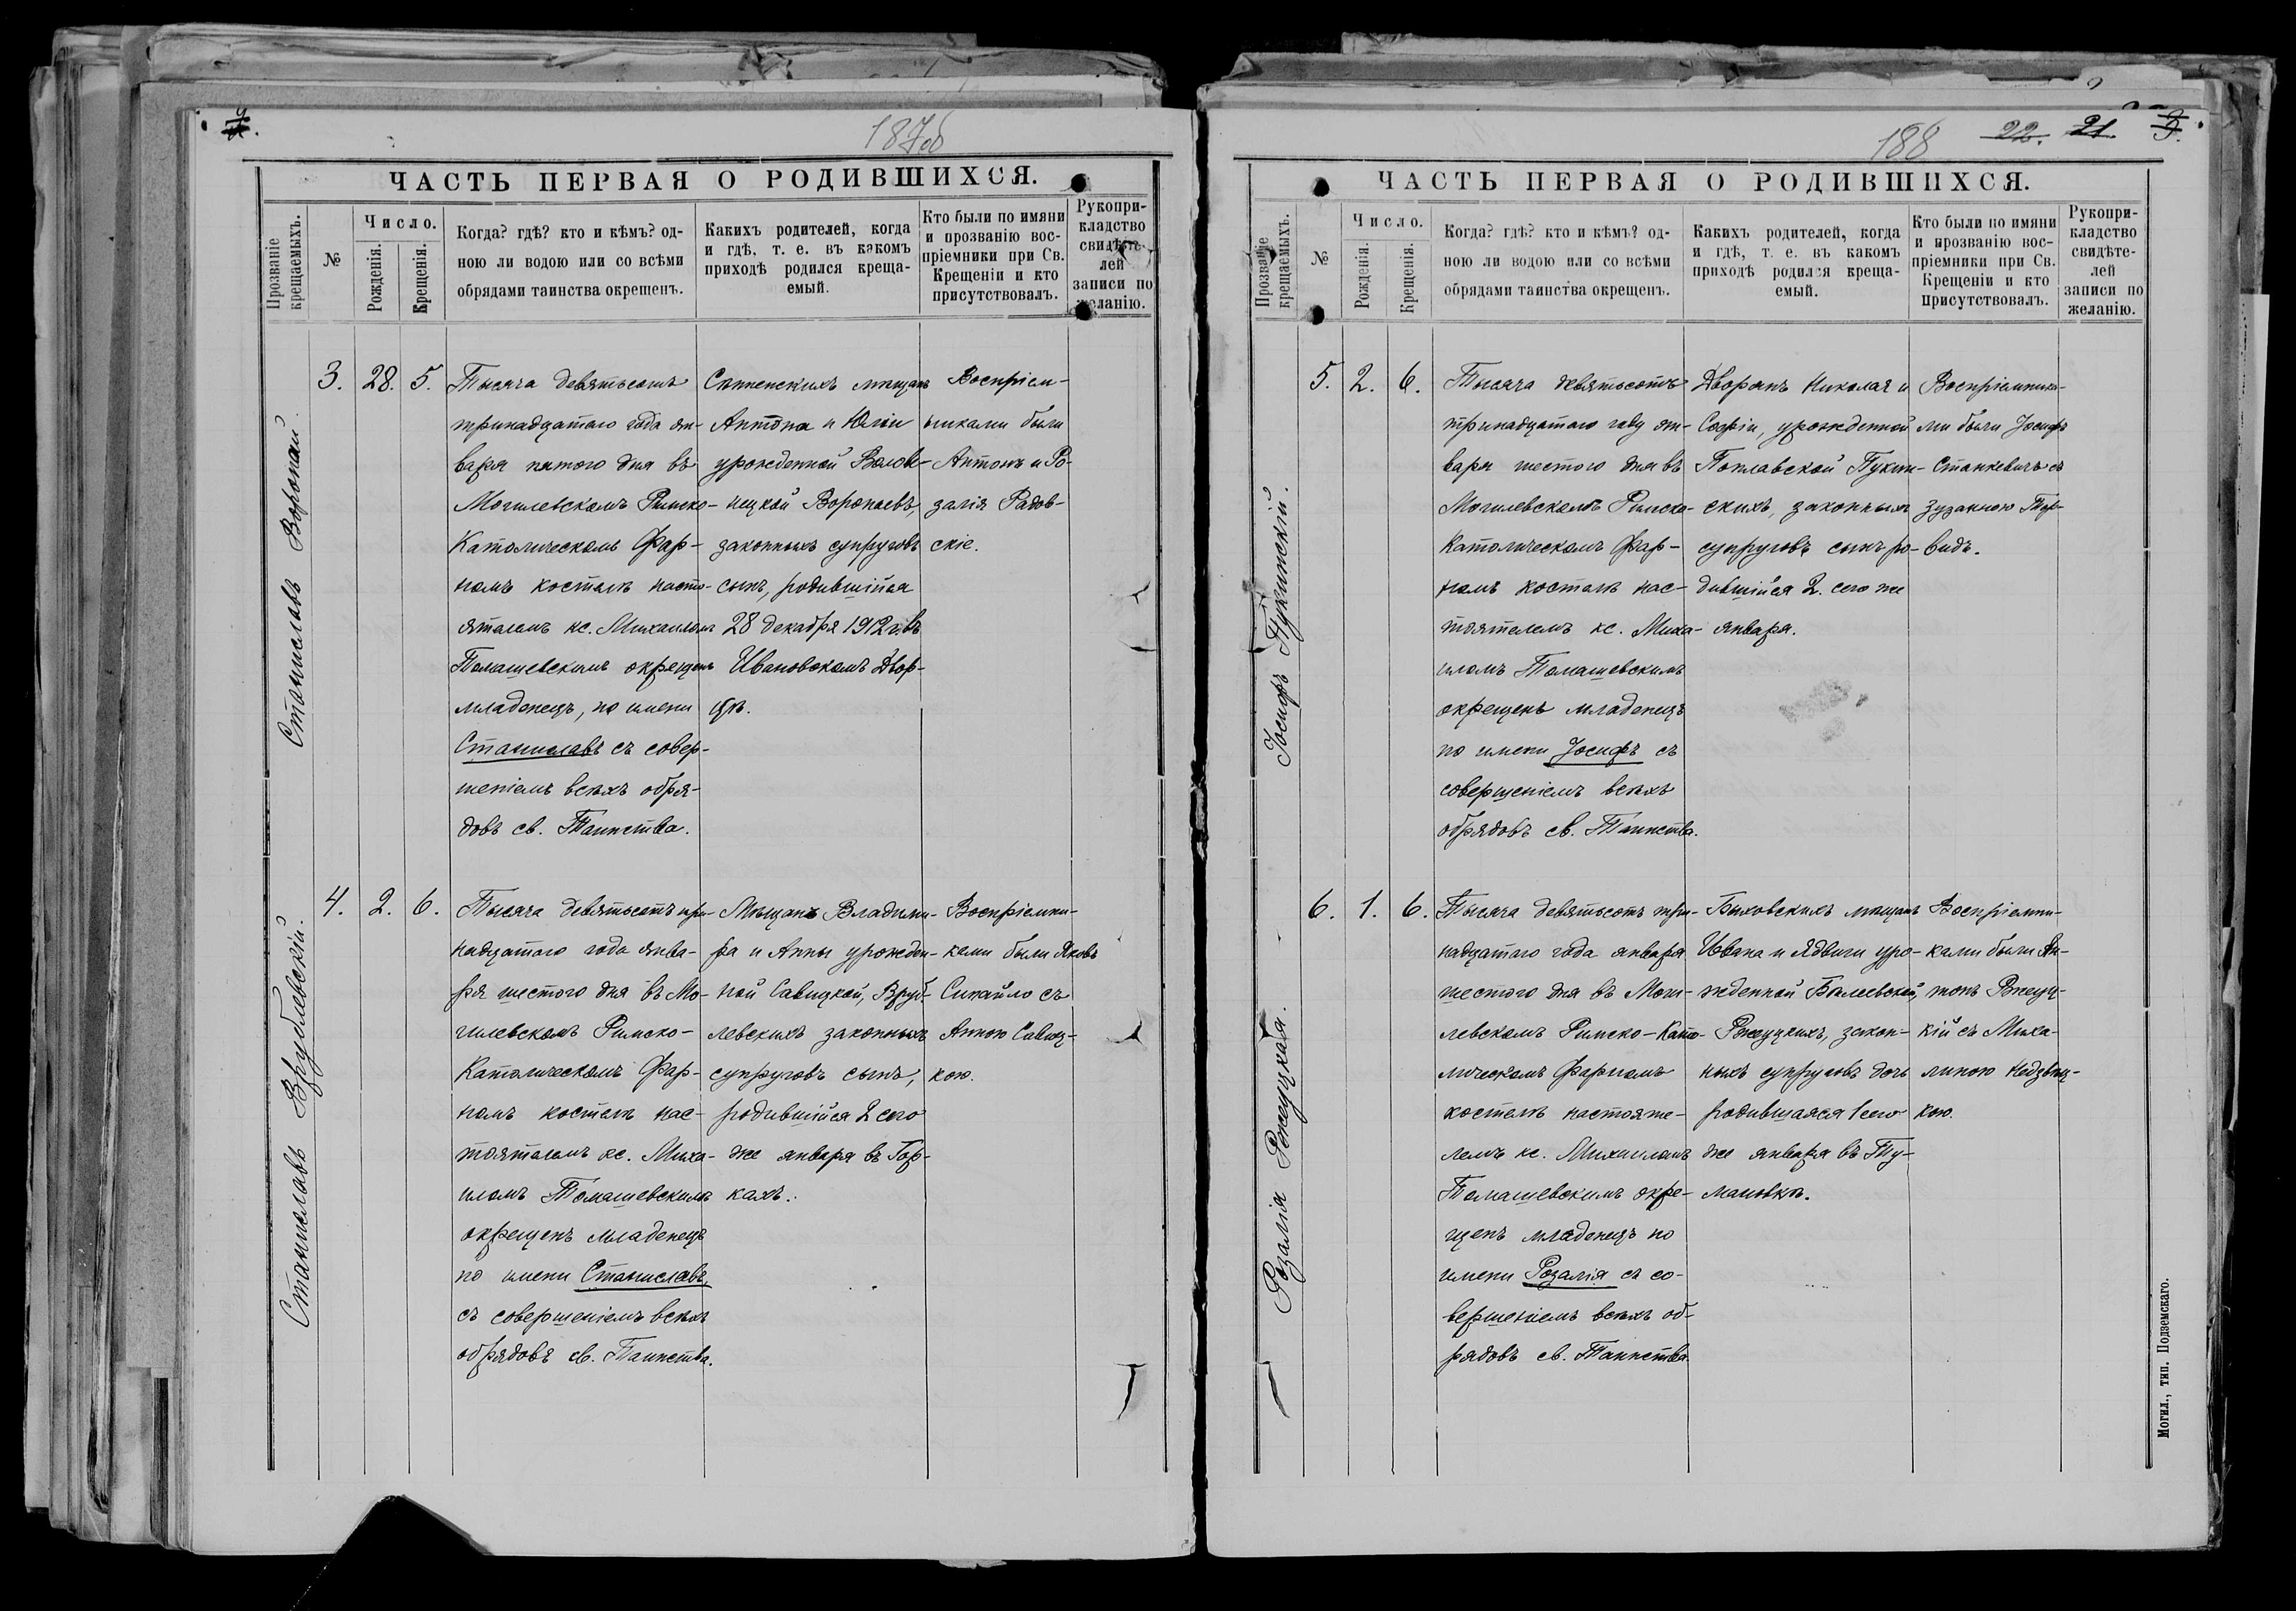 187об
ЧАСТЬ ПЕРВАЯ О РОДИВШИХСЯ.
Прозваніе крещаемыхъ.
№
Число.
Рожденія.
Крещенія.
Когда? гдѣ? кто и кѣмъ? од-
ною ли водою или со всѣми
обрядами таинства окрещенъ.
Какихъ родителей, когда
и гдѣ, т. е. въ какомъ
приходѣ родился креща-
емый.
Кто были по имяни
и прозванію вос-
пріемники при Св.
Крещеніи и кто
присутствовалъ.
Рукопри-
кладство
свидѣте-
лей
записи по
желанію.
Станиславъ Воропай
3. 28. 5.
Тысяча девятьсотъ
тринадцатаго года ян-
варя пятого дня въ
Могилевскомъ Римско-
Католическомъ Фар-
номъ костелѣ насто-
ятелемъ кс. Михаиломъ
Томашевскимъ окрещенъ
младенецъ, по имени
Станиславъ съ совер-
шеніемъ всѣхъ обря-
довъ св. Таинства.
мещанъ
Антона и Юліи
урожденной
Воропаевъ,
законныхъ супруговъ
сынъ, родившійся
28 декабря 1912 г. въ
Ивановскомъ Двор-
цѣ.
Воспріем-
никами были
Антонъ и Ро-
залія Радов-
скіе.
Станиславъ Врублевскій.
4. 2. 6.
Тысяча девятьсотъ три-
надцатого года янва-
ря шестого дня въ Мо-
гилевскомъ Римско-
Католическомъ Фар-
номъ костелѣ нас-
тоятелемъ кс. Миха-
иломъ Томашевскимъ
окрещенъ младенецъ
по имени Станиславъ
съ совершеніемъ всѣхъ
обрядовъ св. Таинства.
Мѣщанъ Владими-
ра и Анны урожден-
ной Савицкой, Вруб-
левскихъ законныхъ
супруговъ сынъ,
родившійся 2 сего
же января въ Гор-
кахъ.
Воспріемни-
ками были Яковъ
съ
Анною Савиц-
кою.
188 22. 21.
ЧАСТЬ ПЕРВАЯ О РОДИВШИХСЯ.
Прозваніе крещаемыхъ.
№
Число.
Рожденія.
Крещенія.
Когда? гдѣ? кто и кѣмъ? од-
ною ли водою или со всѣми
обрядами таинства окрещенъ.
Какихъ родителей, когда
и гдѣ, т. е. въ какомъ
приходѣ родился креща-
емый.
Кто были по имяни
и прозванію вос-
пріемники при Св.
Крещеніи и кто
присутствовалъ.
Рукопри-
кладство
свидѣте-
лей
записи по
желанію.
Іосифъ Пукинскій.
5. 2. 6.
Тысяча девятьсотъ
тринадцатого году ян-
варя шестого дня въ
Могилевскомъ Римско-
Католическомъ Фар-
номъ костелѣ нас-
тоятелемъ кс. Миха-
иломъ Томашевскимъ
окрещенъ младенецъ
по имени Іосифъ съ
совершеніемъ всѣхъ
обрядовъ св. Таинства.
Дворянъ Николая и
Софіи, урожденной
Поплавской Пукин-
скихъ, законныхъ
супруговъ сынъ ро-
дившійся 2. сего же
января.
Воспріемника-
ми были Іосифъ
Станкевичъ съ
Зузанною Тор-
видъ.
Розалія Ржеуцкая.
6. 1. 6.
Тысяча девятьсотъ три-
надцатого года января
шестого дня въ Моги-
левскомъ Римско-Като-
лическомъ Фарномъ
костелѣ настояте-
лемъ кс. Михаиломъ
Томашевскимъ окре-
щенъ младенецъ по
имени Розалія съ со-
вершеніемъ всѣхъ об-
рядовъ св. Таинства.
Быховскихъ мещанъ
Ивана и Ядвиги уро-
жденной
Ржеуцкихъ, закон-
ныхъ супруговъ дочь
родившаяся 1 сего
же января въ Ту-
мановкѣ.
Воспріемни-
ками были Ан-
тонъ Ржеуц-
кій съ Миха-
линою Недзвец-
кою.
Могил., тип. Подземскаго.